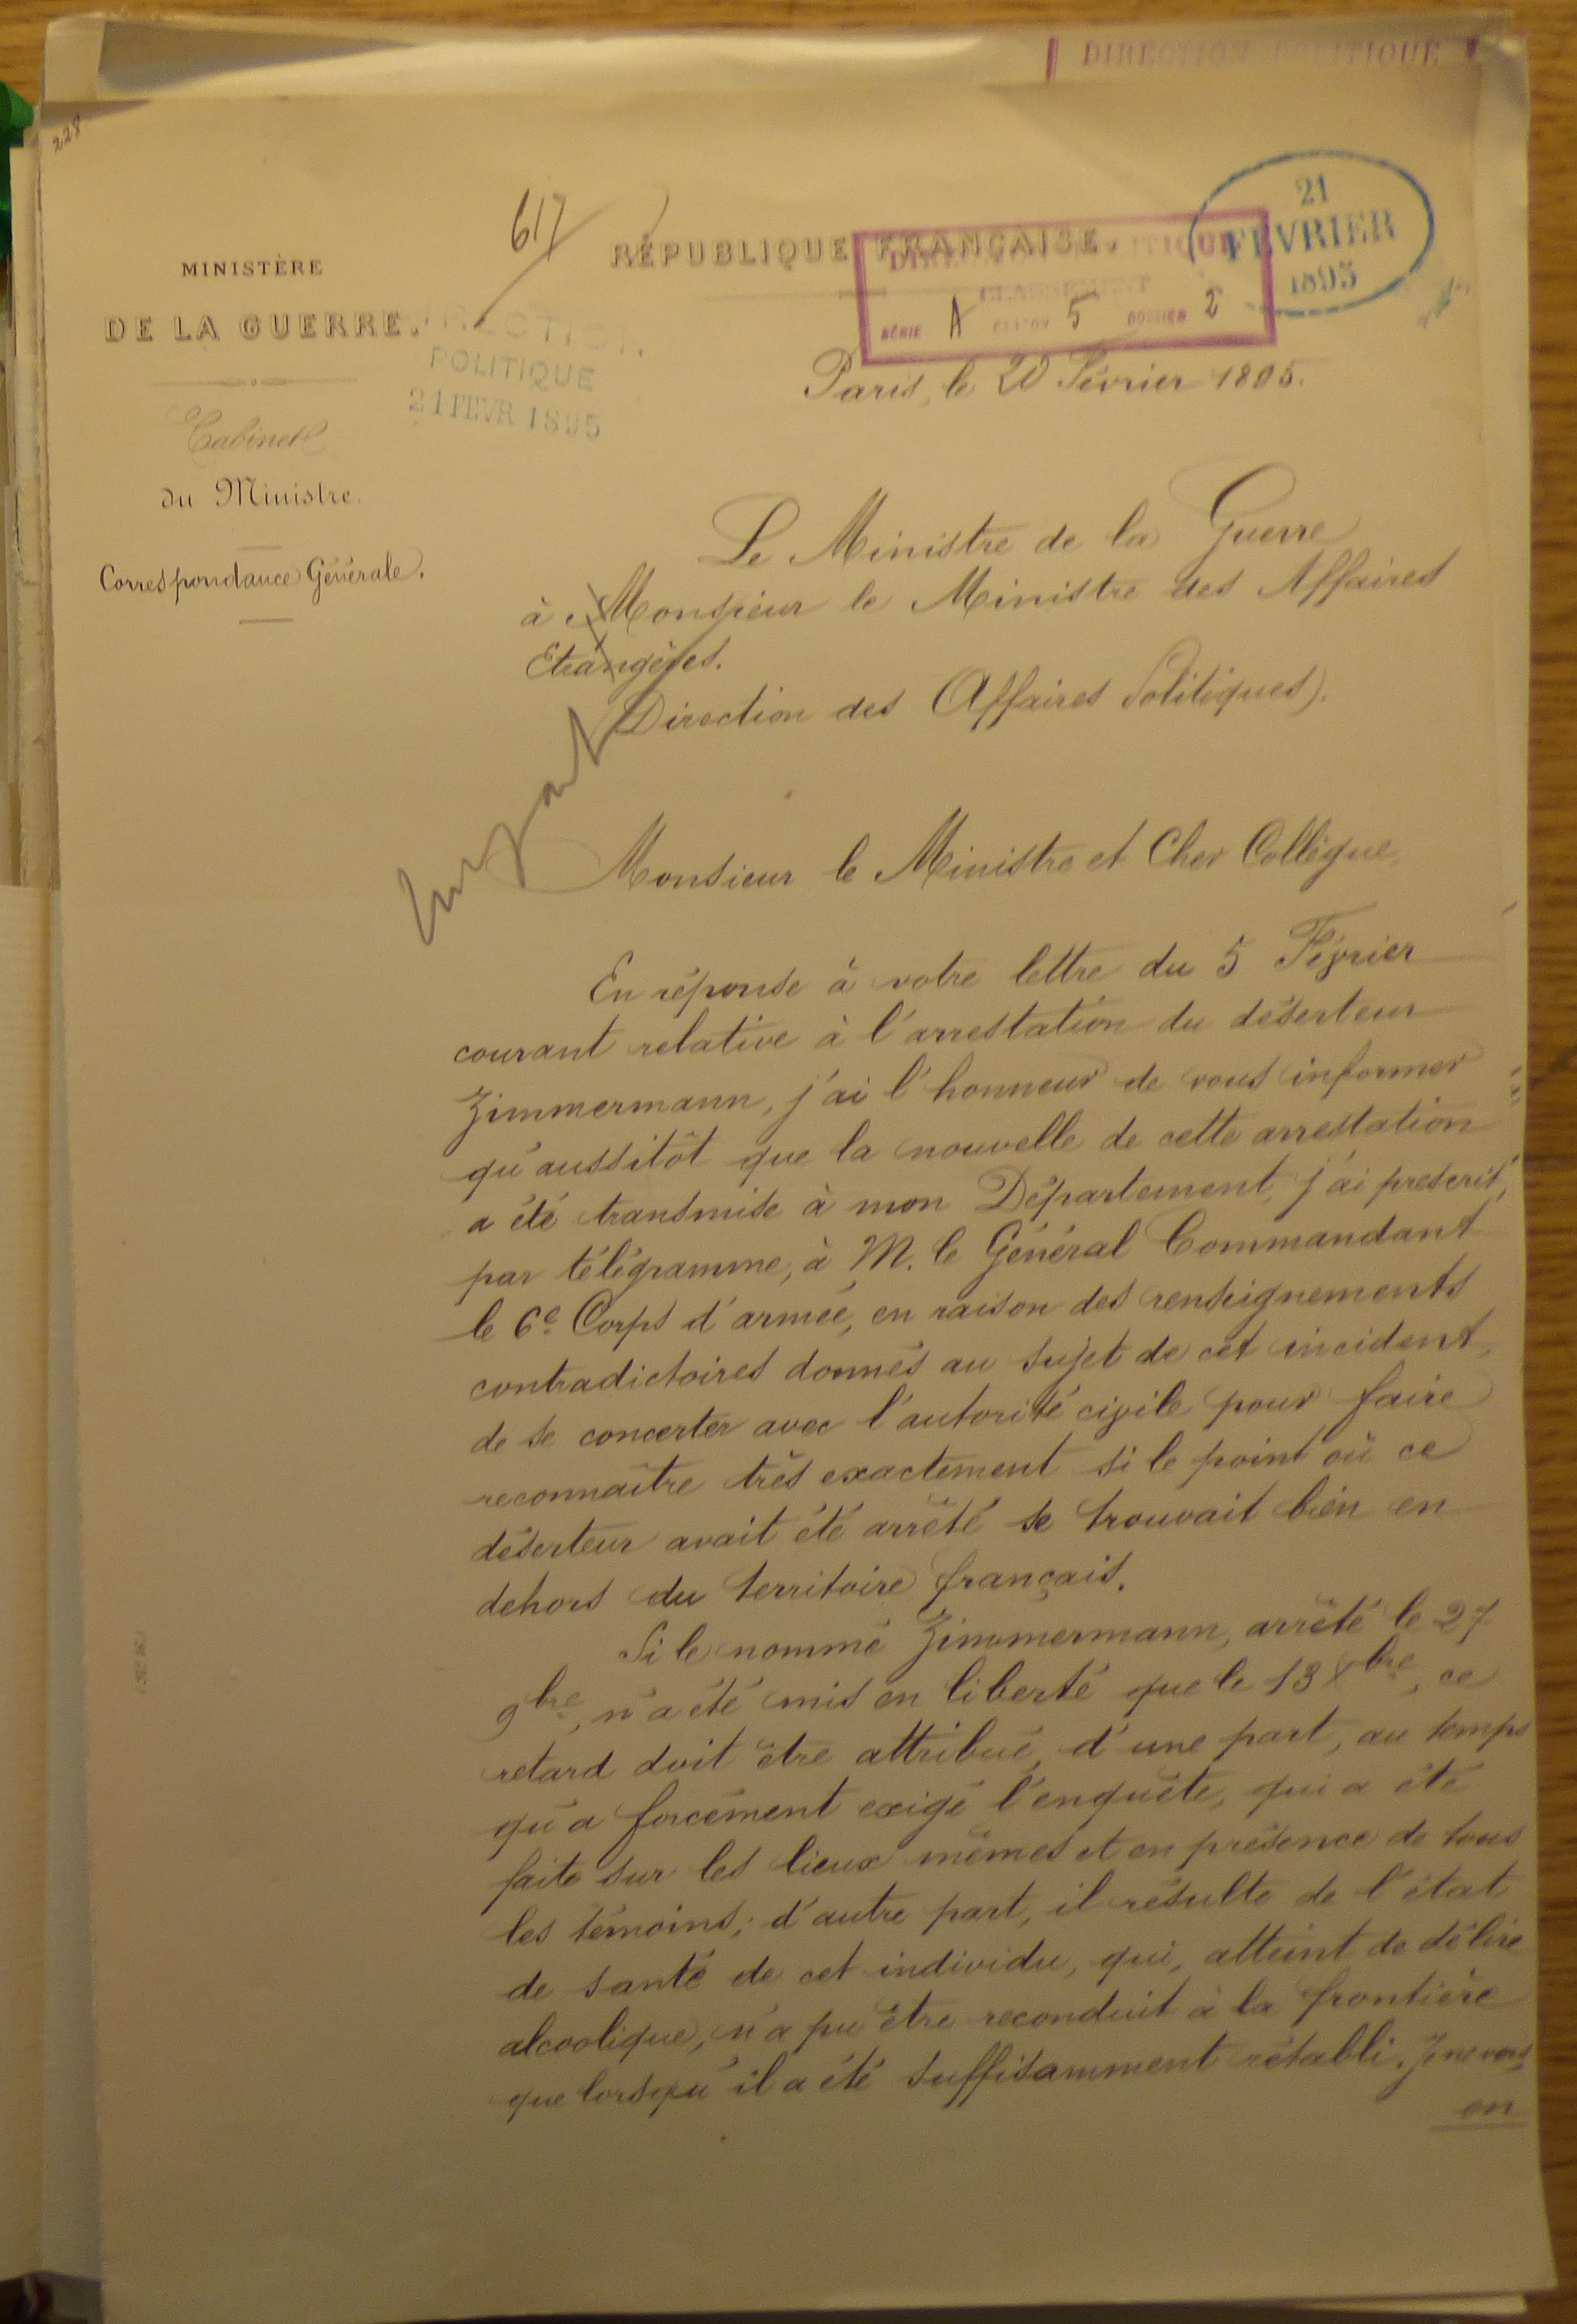 DIRECTION POLITIQUE
228
617
RÉPUBLIQUE FRANÇAISE.
21
FÉVRIER
1895
DIRECTION POLITIQUE
CLASSEMENT
SÉRIE A CARTON 5 DOSSIER 2
MINISTÈRE
DE LA GUERRE.
DIRECTION
POLITIQUE
21 FEVR 1895
Cabinet
du Ministre.
Correspondance Générale.
Paris, le 20 Février 1895.
Le Ministre de la Guerre
à Monsieur le Ministre des Affaires
Etrangères.
(Direction des Affaires Politiques).
Monsieur le Ministre et Cher Collègue,
En réponse à votre lettre du 5 Février
courant relative à l'arrestation du déserteur
Zimmermann, j'ai l'honneur de vous informer
qu'aussitôt que la nouvelle de cette arrestation
a été transmise à mon Département, j'ai prescrit,
par télégramme, à M. le Général Commandant
le 6e Corps d'armée, en raison des renseignements
contradictoires donnés au sujet de cet incident,
de se concerter avec l'autorité civile pour faire
reconnaître très exactement si le point où ce
déserteur avait été arrêté se trouvait bien en
dehors du territoire français.
Si le nommé Zimmermann, arrêté le 27
9bre, n'a été mis en liberté que le 13 Xbre, ce
retard doit être attribué, d'une part, au temps
qu'a forcément exigé l'enquête, qui a été
faite sur les lieux mêmes et en présence de tous
les témoins; d'autre part, il résulte de l'état
de santé de cet individu, qui, atteint de délire
alcoolique, n'a pu être reconduit à la frontière
que lorsqu'il a été suffisamment rétabli. Je ne vois
en